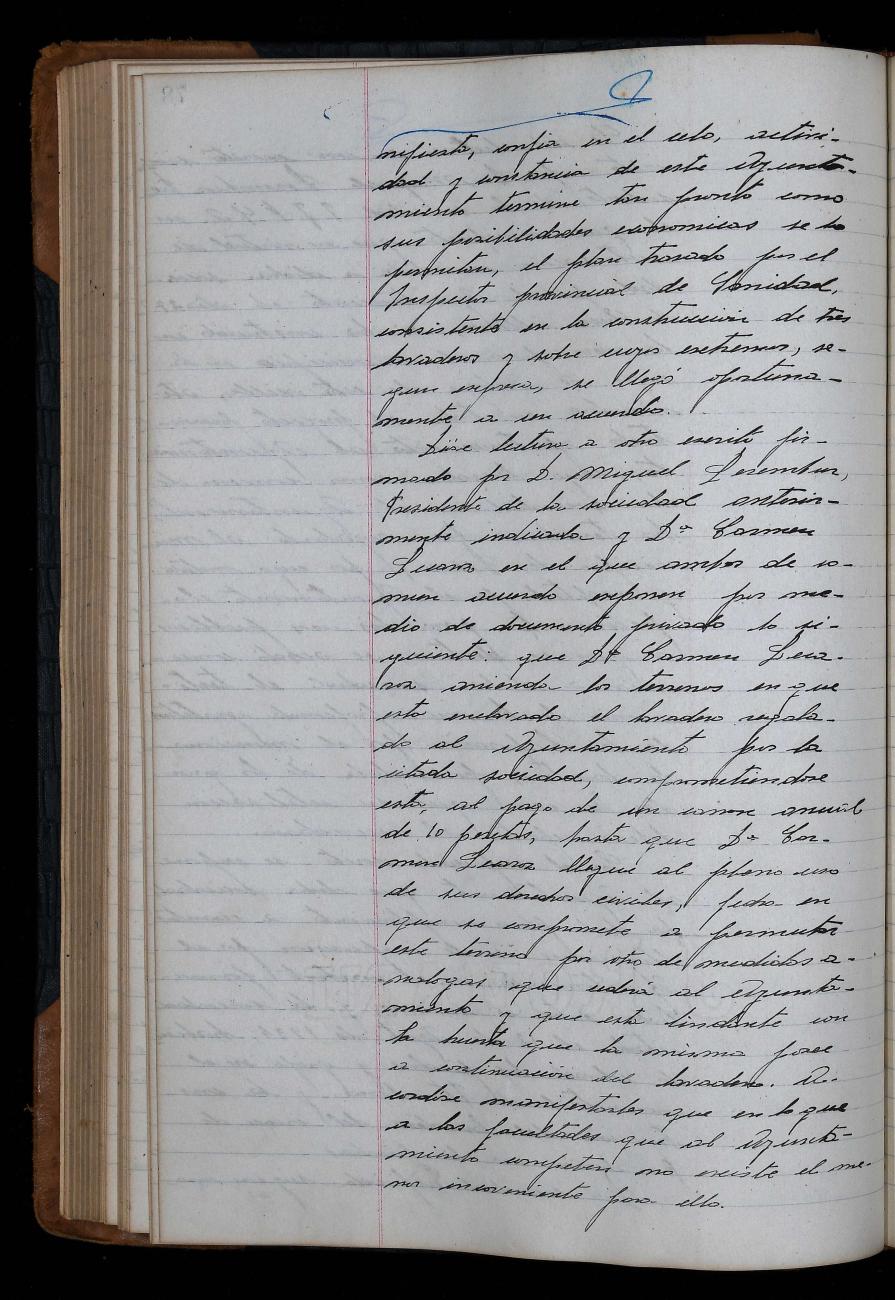 nifiesta, confia en el celo, activi-
dad y constancia de este Ayunta-
miento termine tan pronto como
sus posibilidades economicas se lo
permitan, el plan trazado por el
Inspector provincial de Sanidad,
consistente en la construcción de tres
lavaderos y sobre cuyos extremos, se-
gun expresa, se llegó oportuna-
mente a un acuerdo.
Dióse lectura a otro escrito fir-
mado por D. Miguel
Presidente de la sociedad anterior-
mente indicada y Dª Carmen
en el que ambos de co-
mun acuerdo exponen por me-
dio de documento privado lo si-
guiente: que Dª Carmen
arrienda los terrenos en que
esta enclavado el lavadero regala-
do al Ayuntamiento por la
citada sociedad, comprometiendose
esta, al pago de un canon anual
de 10 pesetas, hasta que Dª Car-
men llegue al pleno uso
de sus derechos civiles, fecha en
que se compromete a permutar
este terreno por otro de medidas a-
nalogas que cederá al Ayunta-
miento y que esta lindante con
la huerta que la misma posee
a continuación del lavadero. A-
cordóse manifestarles que en lo que
a las facultades que al Ayunta-
miento competen no existe el me-
nor inconveniente para ello.